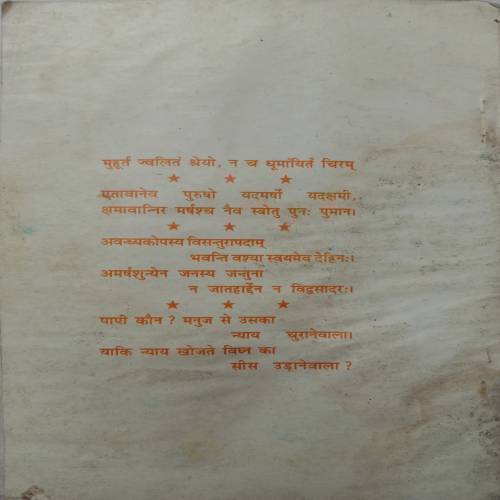 मुहूर्तं ज्वलितं श्रेयो, न च धूमायितं चिरम्
★ ★ ★
एतावानेव पुरुषो यदमर्षो यदक्षमी,
क्षमावान्निर मर्षश्च नैव स्त्रोतु पुनः पुमान।
★ ★ ★
अवन्ध्यकोपस्य विसन्तुरापदाम्
भवन्ति वश्या स्वयमेव देहिनः।
अमर्षशुन्येन जनस्य जन्तुना
न जातहार्द्देन न विद्वसादरः।
★ ★ ★
पापी कौन ? मनुज से उसका
न्याय चुरानेवाला।
याकि न्याय खोजते विघ्न का
सीस उड़ानेवाला ?